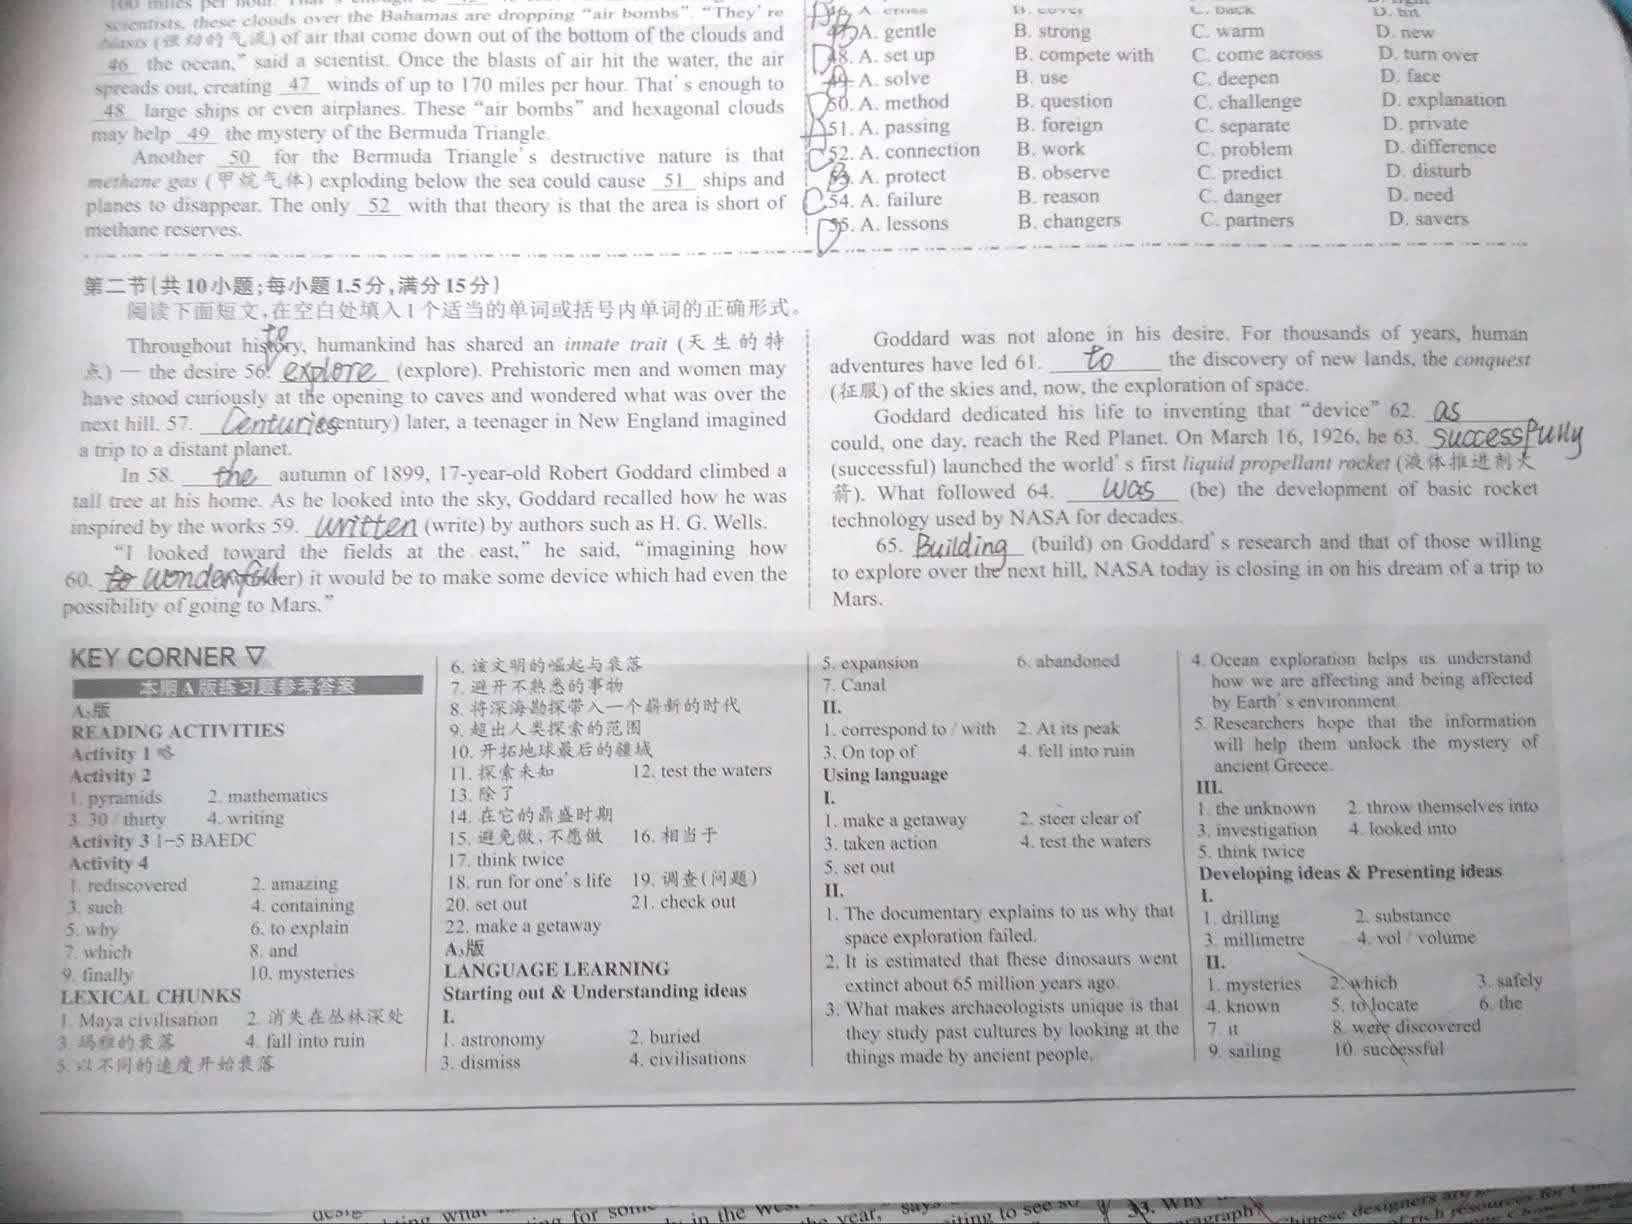 scientists, these clouds over the Bahamas are dropping “air bombs”. “They're
of air that come down out of the bottom of the clouds and
46 the ocean,” said a scientist. Once the blasts of air hit the water, the air
spreads out, creating 47 winds of up to 170 miles per hour. That's enough to
48 large ships or even airplanes. These “air bombs” and hexagonal clouds
may help 49 the mystery of the Bermuda Triangle.
Another 50 for the Bermuda Triangle's destructive nature is that
methane gas (甲烷气体) exploding below the sea could cause 51 ships and
planes to disappear. The only 52 with that theory is that the area is short of
methane reserves.
46. A. cross B. cover C. back D. hit
47. A. gentle B. strong C. warm D. new
48. A. set up B. compete with C. come across D. turn over
49. A. solve B. use C. deepen D. face
50. A. method B. question C. challenge D. explanation
51. A. passing B. foreign C. separate D. private
52. A. connection B. work C. problem D. difference
53. A. protect B. observe C. predict D. disturb
54. A. failure B. reason C. danger D. need
55. A. lessons B. changers C. partners D. savers
第二节(共10小题;每小题1.5分,满分15分)
阅读下面短文,在空白处填入1个适当的单词或括号内单词的正确形式。
Throughout history, humankind has shared an innate trait (天生的特
点) — the desire 56. to explore (explore). Prehistoric men and women may
have stood curiously at the opening to caves and wondered what was over the
next hill. 57. Centuries (century) later, a teenager in New England imagined
a trip to a distant planet.
In 58. the autumn of 1899, 17-year-old Robert Goddard climbed a
tall tree at his home. As he looked into the sky, Goddard recalled how he was
inspired by the works 59. written (write) by authors such as H. G. Wells.
“I looked toward the fields at the east,” he said, “imagining how
60. wonderful (wonder) it would be to make some device which had even the
possibility of going to Mars.”
Goddard was not alone in his desire. For thousands of years, human
adventures have led 61. to the discovery of new lands, the conquest
(征服) of the skies and, now, the exploration of space.
Goddard dedicated his life to inventing that “device” 62. as
could, one day, reach the Red Planet. On March 16, 1926, he 63. successfully
(successful) launched the world's first liquid propellant rocket (液体推进剂火
箭). What followed 64. was (be) the development of basic rocket
technology used by NASA for decades.
65. Building (build) on Goddard's research and that of those willing
to explore over the next hill, NASA today is closing in on his dream of a trip to
Mars.
KEY CORNER ▽
本期A版练习题参考答案
A₂版
READING ACTIVITIES
Activity 1 略
Activity 2
1. pyramids 2. mathematics
3. 30 / thirty 4. writing
Activity 3 1–5 BAEDC
Activity 4
1. rediscovered 2. amazing
3. such 4. containing
5. why 6. to explain
7. which 8. and
9. finally 10. mysteries
LEXICAL CHUNKS
1. Maya civilisation 2. 消失在丛林深处
3. 玛雅的衰落 4. fall into ruin
5. 以不同的速度开始衰落
6. 该文明的崛起与衰落
7. 避开不熟悉的事物
8. 将深海勘探带入一个崭新的时代
9. 超出人类探索的范围
10. 开拓地球最后的疆域
11. 探索未知 12. test the waters
13. 除了
14. 在它的鼎盛时期
15. 避免做,不愿做 16. 相当于
17. think twice
18. run for one's life 19. 调查(问题)
20. set out 21. check out
22. make a getaway
A₃版
LANGUAGE LEARNING
Starting out & Understanding ideas
I.
1. astronomy 2. buried
3. dismiss 4. civilisations
5. expansion 6. abandoned
7. Canal
II.
1. correspond to / with 2. At its peak
3. On top of 4. fell into ruin
Using language
I.
1. make a getaway 2. steer clear of
3. taken action 4. test the waters
5. set out
II.
1. The documentary explains to us why that
space exploration failed.
2. It is estimated that these dinosaurs went
extinct about 65 million years ago.
3. What makes archaeologists unique is that
they study past cultures by looking at the
things made by ancient people.
4. Ocean exploration helps us understand
how we are affecting and being affected
by Earth's environment.
5. Researchers hope that the information
will help them unlock the mystery of
ancient Greece.
III.
1. the unknown 2. throw themselves into
3. investigation 4. looked into
5. think twice
Developing ideas & Presenting ideas
I.
1. drilling 2. substance
3. millimetre 4. vol / volume
II.
1. mysteries 2. which 3. safely
4. known 5. to locate 6. the
7. it 8. were discovered
9. sailing 10. successful